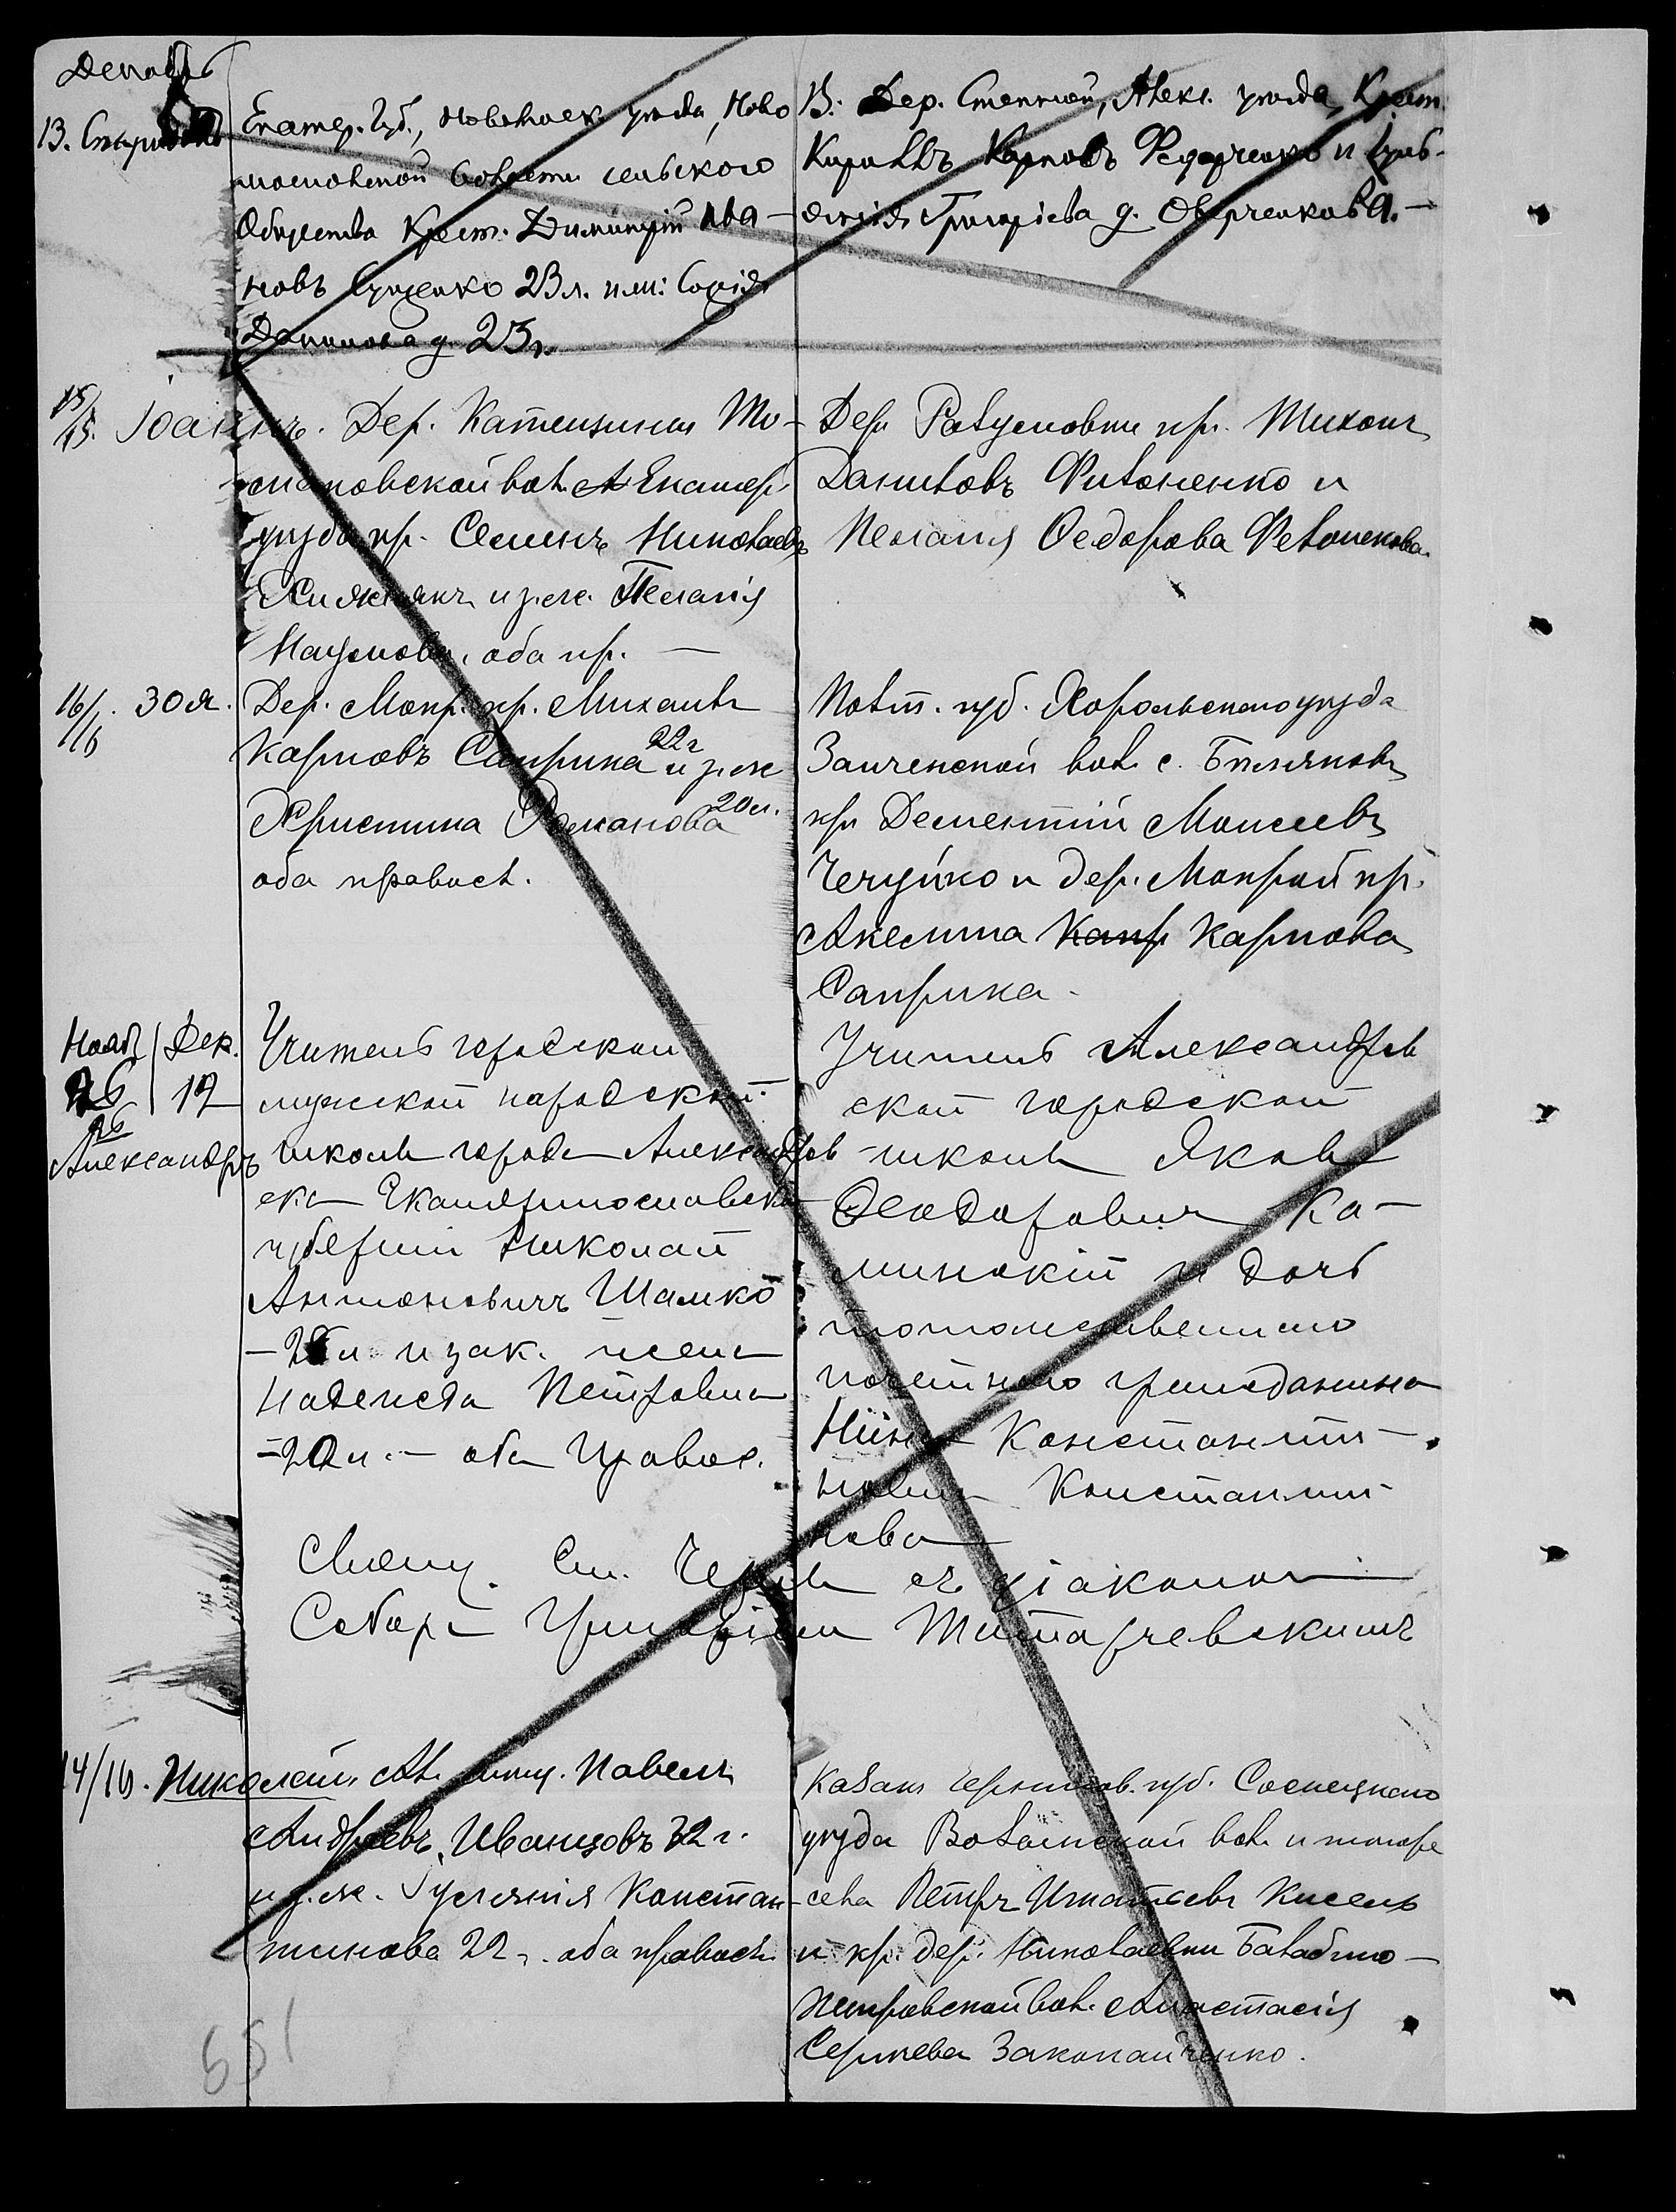 Декабрь
13. Спиридонъ
Екатер. Губ., Новомоск уѣзда, Ново
московской волости сельского
Общества Крест. Димитрій Ива-
новъ Гуценко 23 л. и ж: Софія
Данилова д. 23 г.
13. Дер. Степной, Алек. уѣзда, Крест.
Кириллъ Карповъ Федорченко и
Григоріева д. Оверченкова.-
15/15. Іоаннъ. Дер. Катещиной То-
маковской вол. Екатер.
уѣзда кр. Семенъ Николаевъ
Хижнякъ и з. ж. Пелагія
Наумова, оба пр. —
Дер. Разумовки кр. Тихонъ
Даниловъ Филоненко и
Пелагія Ѳедорова Филоненкова.
16/16. Зоя. Дер. Мокр. кр. Михаилъ
Карповъ Саприка 22 г и з. ж
Христина Романова 20 л.
оба правосл.
Полт. губ. Хорольскаго уѣзда
вол. с.
кр. Дементій Моисеевъ
Чечуйко и дер. Мокрой кр.
Акелина Капр Карпова
Саприка.
Нояб | Дек.
26 | 12
26
Александръ
Учитель городской
мужской народской
школы города Александров
ска Екатеринославской
губерніи Николай
Антоновичъ Шамко
и зак. жена
Надежда Петровна
- оба Правос.
Учитель Александров
ской городской
школы Яковъ
Ѳеодоровичъ Ка-
минскій и дочь
потомственнаго
почетнаго гражданина
Нина Константи-
новна Константи-
нова
Свящ. съ діакономъ
Собора Григоріемъ Титаревскимъ
14/16. Николай. Ал. мѣщ. Павелъ
Андреевъ Иванцовъ 32 г.
и з. ж. Гугліянія Констан-
тинова 22 г. оба правосл.
Казакъ Чернигов. губ. Сосницкаго
уѣзда Волынской вол. и того же
села Петръ Игнатьевъ Кисель
и кр. дер. Николаевки Балабино-
Петровской вол. Анастасія
Сергѣева Законайченко.
551